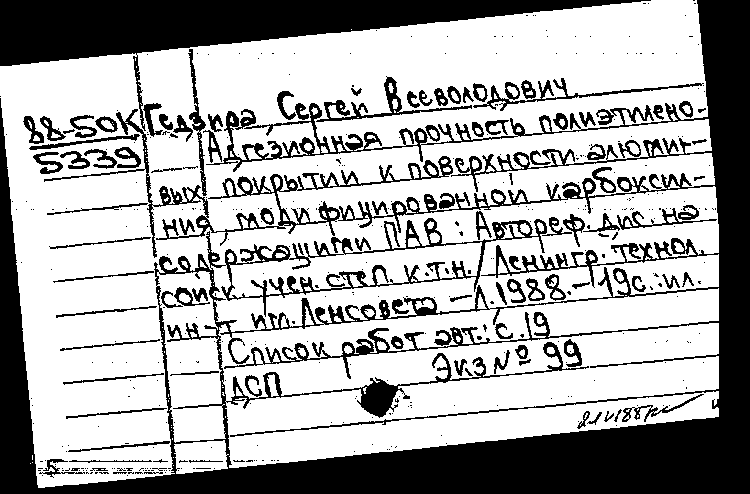 88-50К Гедзира, Сергей Всеволодович.
5339 Адгезионная прочность полиэтилено-
вых покрытий к поверхности алюми-
ния, модифицированной карбоксил-
содержащими ПАВ : Автореф. дис. на
соиск. учен. степ. к.т.н./ Ленингр. технол.
ин-т им. Ленсовета. – Л. 1988. – 19с.:ил.
Список работ авт.: с. 19
ДСП Экз № 99